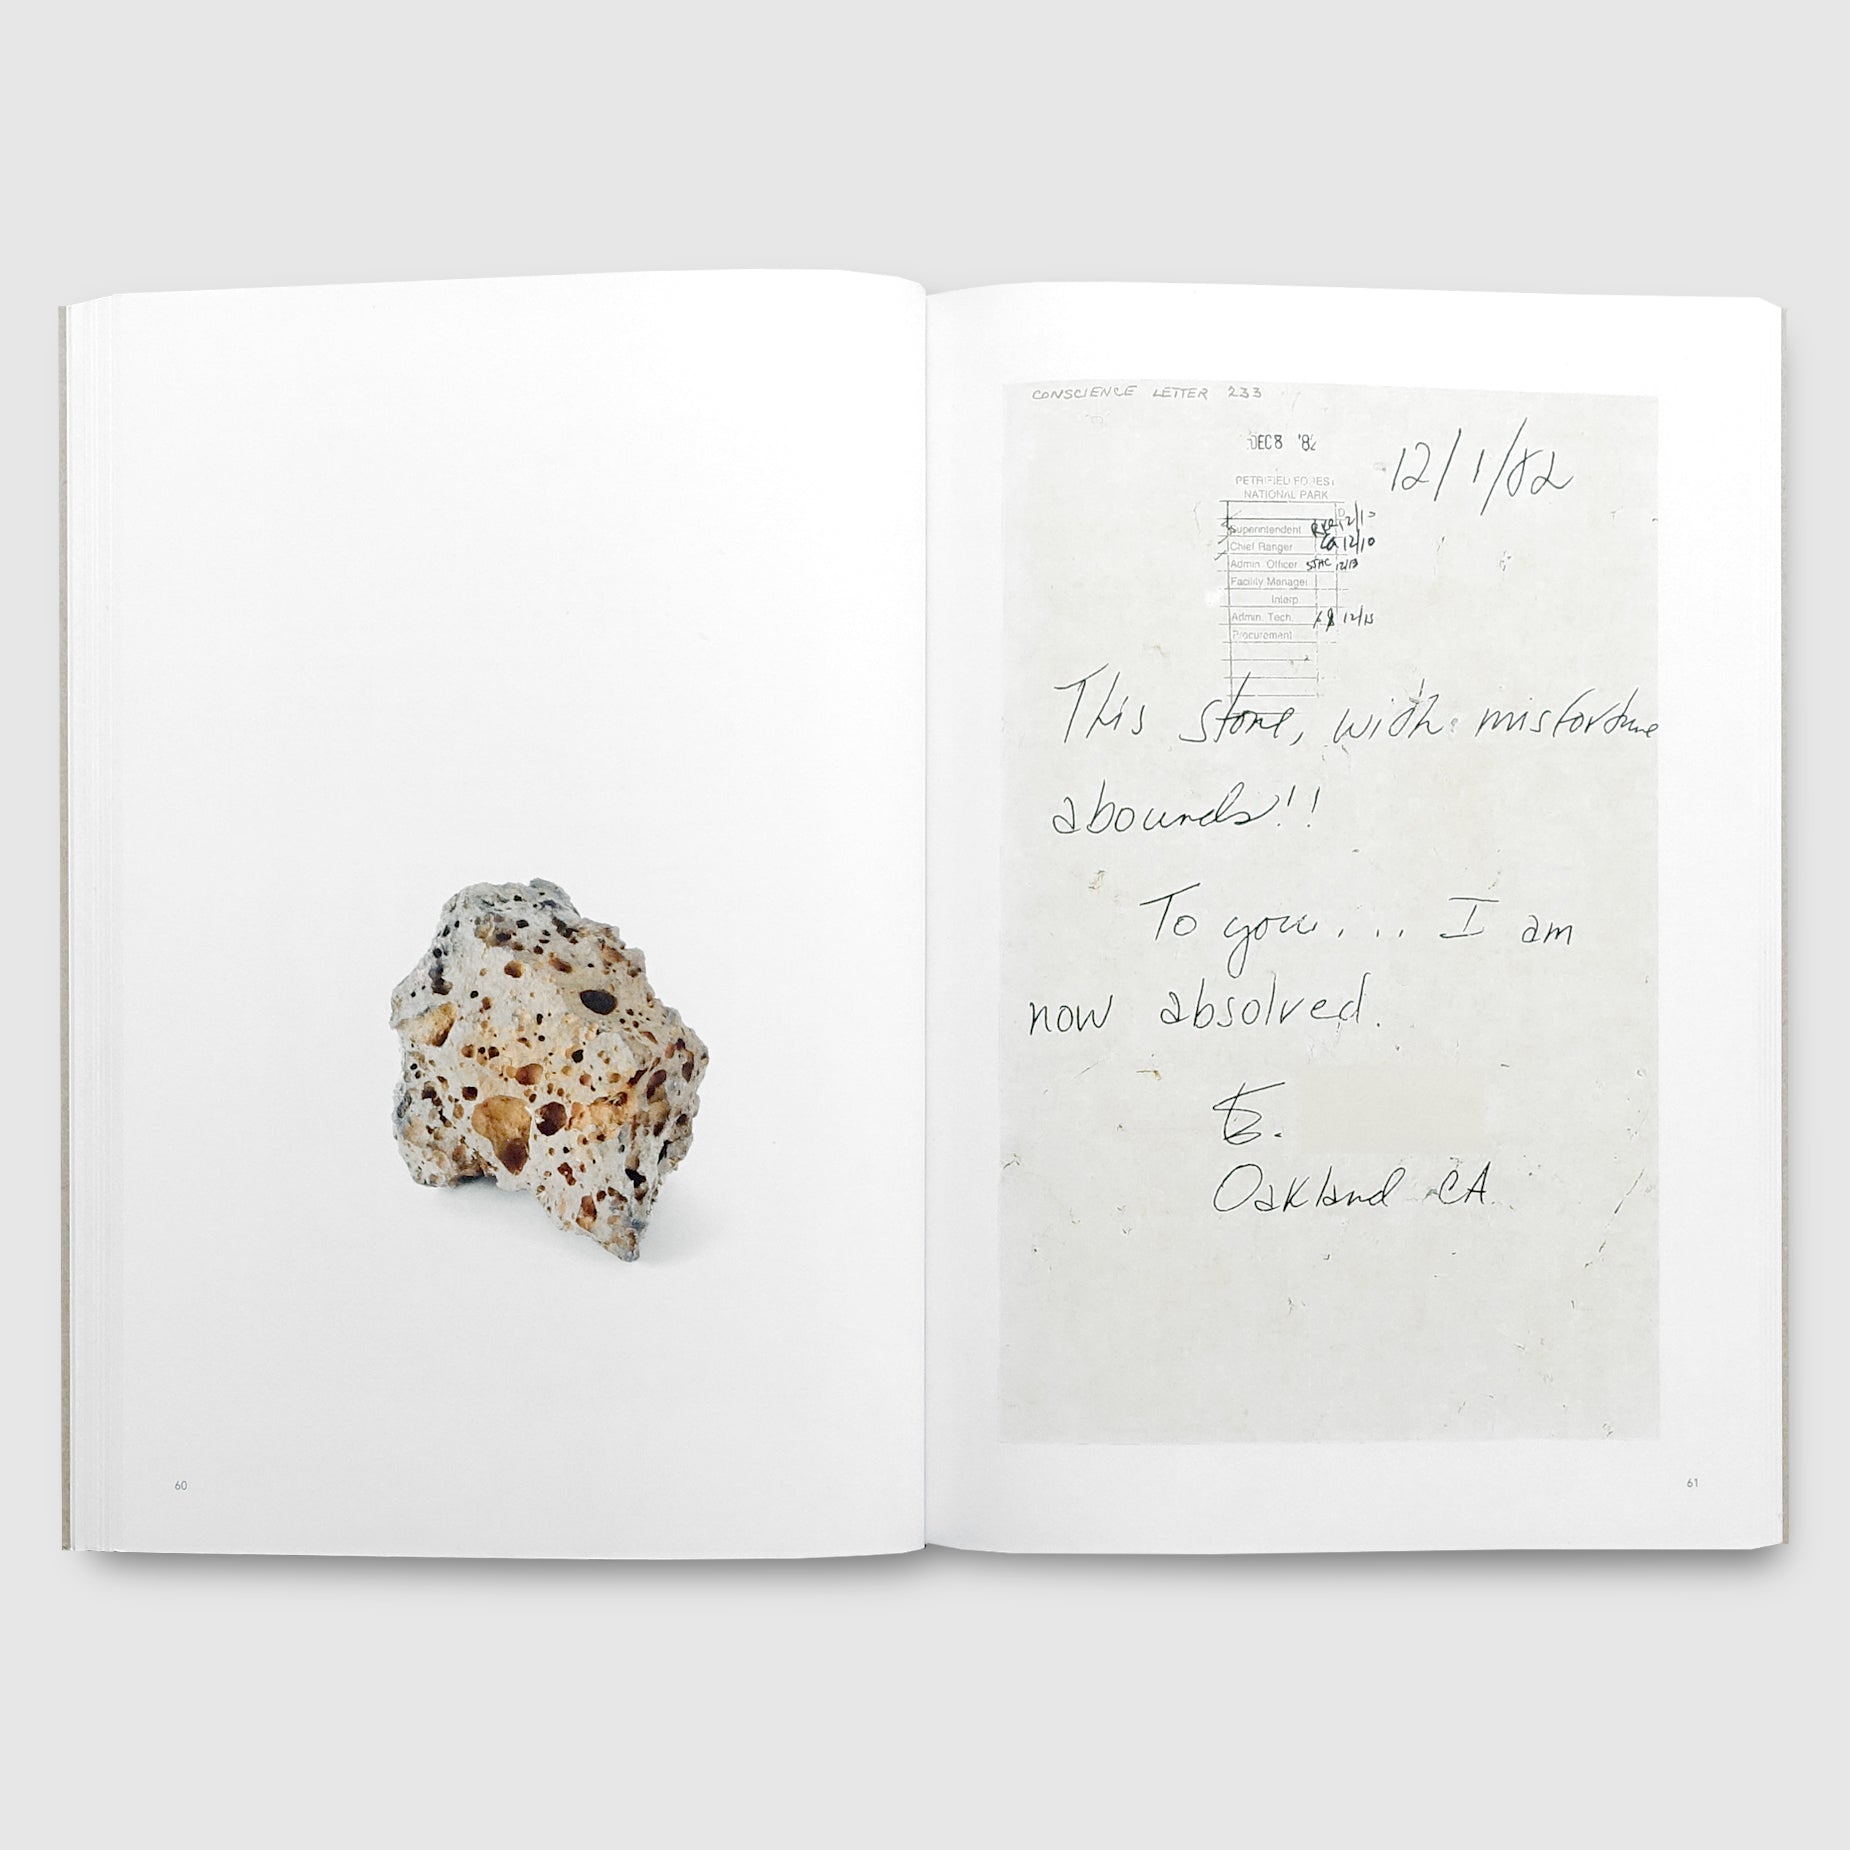 CONSCIENCE LETTER 233
DEC 8 '82
12/1/82
PETRIFIED FOREST
NATIONAL PARK
D
Superintendent 12/10
Chief Ranger 12/10
Admin. Officer 12/13
Facility Manager
Interp.
Admin. Tech. 12/15
Procurement
This stone, with misfortune
abounds!!
To you... I am
now absolved.
Oakland CA.
60
61